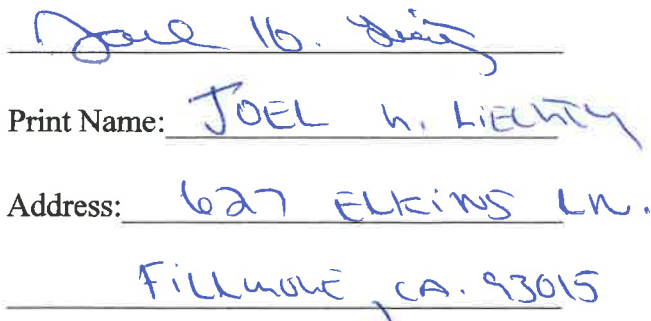 Print Name: JOEL h. LiECHTY
Address: 627 ELKiNS LN.
FiLLMORE, CA. 93015